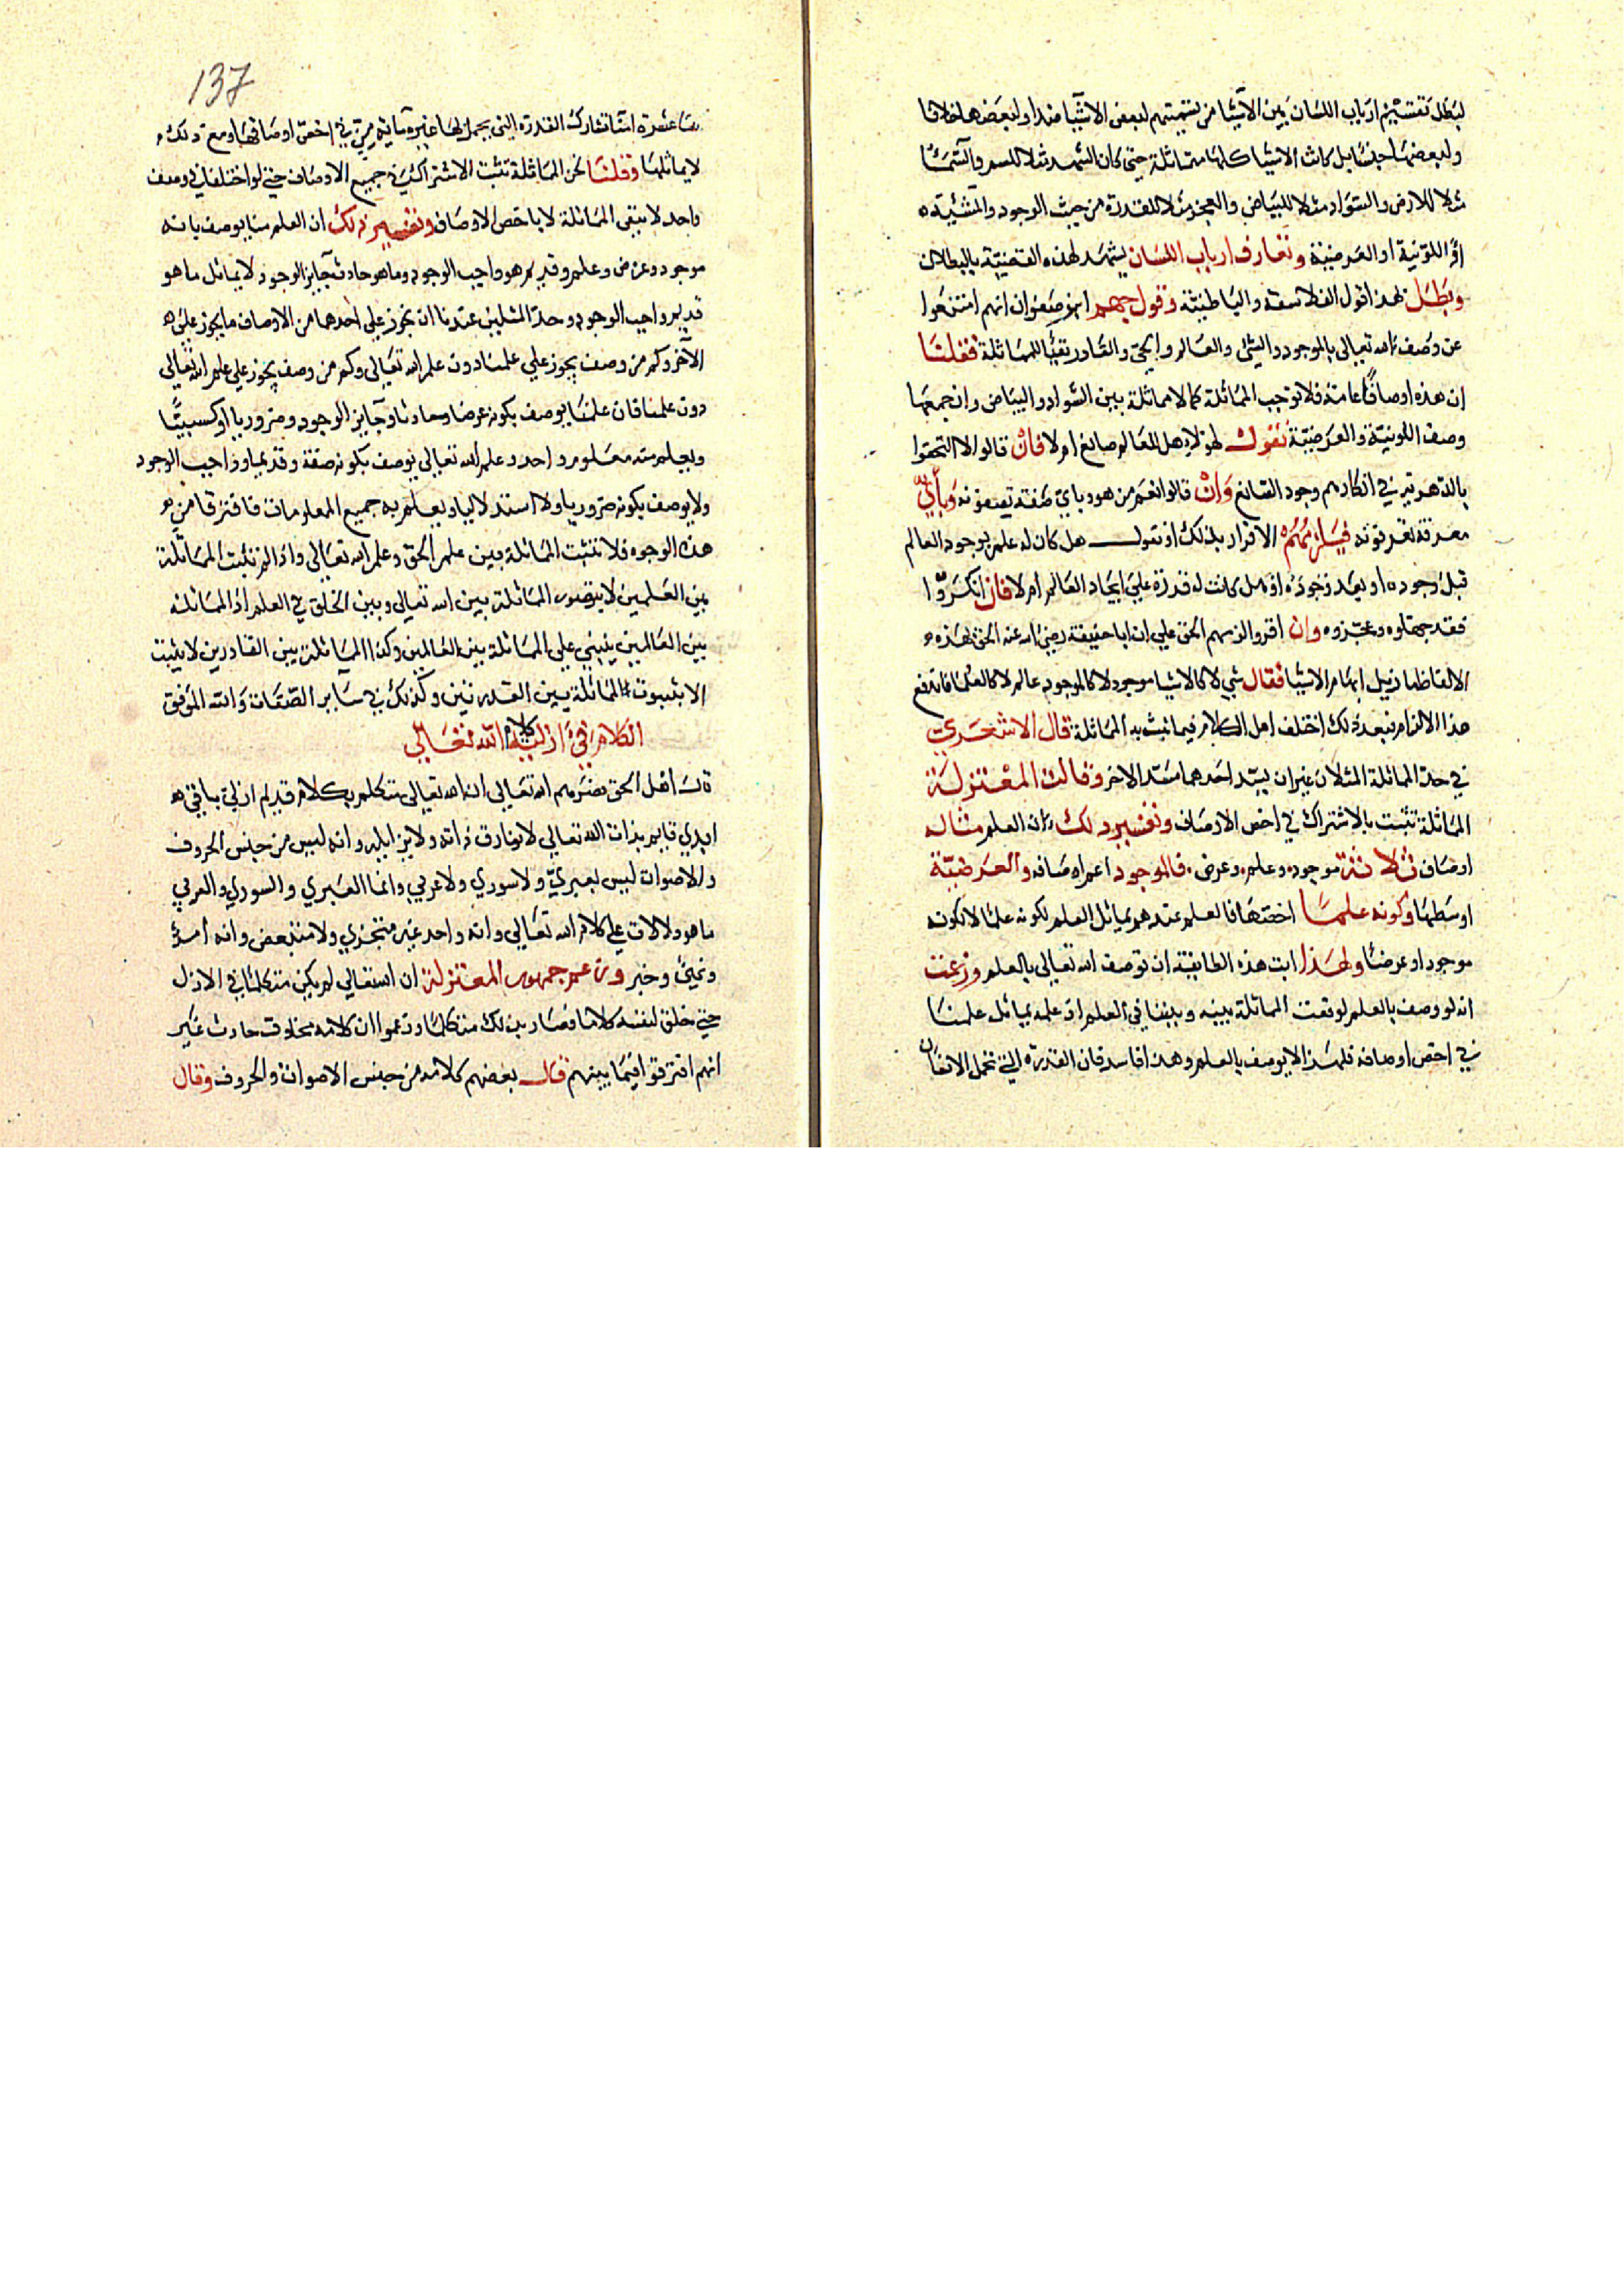 لبطل تقسيم ارباب اللسان بين الاشيا من تسميتهم لبعض الاشيا ضدا ولبعضها خلافا
ولبعضها جنسا بل كانت الاشيا كلها متماثلة حتى كان الشهد مثلا للسم والسما
مثلا للارض والسواد مثلا للبياض والعجز مثلا للقدرة من حيث الوجود والشيئية
او اللونية او العرضية وتعارف ارباب اللسان يشهد لهذه القضية بالبطلان
وبطل بهذا قول الفلاسفة والباطنية وقول جهم ابن صفوان انهم امتنعوا
عن وصف الله تعالى بالموجود والشئ والعالم والحي والقادر نفيا للمماثلة فقلنا
ان هذه اوصاف عامة فلا توجب المماثلة كما لا مماثلة بين السواد والبياض وان جمعها
وصف اللونية والعرضية نقول لهولاء هل للعالم صانع ام لا فان قالوا لا التحقوا
بالدهرية في انكارهم وجود الصانع وان قالوا نعم من هو وباي صفة تصفونه وباي
معرفة تعرفونه فيلزمهم الاقرار بذلك او نقول هل كان له علم بوجود العالم
قبل وجوده او بعد وجوده او هل كانت له قدرة على ايجاد العالم ام لا فان انكروا
فقد جهلوه وعجزوه وان اقروا لزمهم الحق على ان ابا حنيفة رضي الله عنه الحق بهذه
الالفاظ ما يزيل ابهام الاشيا فقال شي لا كالاشيا موجود لا كالموجود عالم لا كالعلما فاندفع
هذا الالزام بعد ذلك اختلف اهل الكلام فيما تثبت به المماثلة قال الاشعري
في حد المماثلة المثلان غيران يسد احدهما مسد الاخر وقالت المعتزلة
المماثلة تثبت بالاشتراك في اخص الاوصاف وتفسير ذلك ان العلم مثاله
اوصاف ثلاثة موجود وعلم وعرض فالموجود اعم اوصافه والعرضية
اوسطها وكونه علما اخصها فالعلم عندهم يماثل العلم لكونه علما لا لكونه
موجودا وعرضا ولهذا ابت هذه الطايفة ان توصف الله تعالى بالعلم وزعمت
انه لو وصف بالعلم لوقعت المماثلة بينه وبيننا في العلم اذ علمه يماثل علمنا
في اخص اوصافه فلهذا لا يوصف بالعلم وهذا فاسد فان القدرة التي تحمل الانسان
137
بها عشرة امنا تشارك القدرة التي يحمل بها غيره مايه من في اخص اوصافها ومع ذلك
لا يماثلها وقلنا نحن المماثلة تثبت الاشتراك في جميع الاوصاف حتى لو اختلفا في وصف
واحد لا يبقى المماثلة لا باخص الاوصاف وتفسير ذلك ان العلم منا يوصف بانه
موجود وعرض وعلم وقديم هو واجب الوجود وما هو حادث جايز الوجود لا يماثل ما هو
قديم واجب الوجود وحد المثلين عندنا ان يجوز على احدهما من الاوصاف ما يجوز على
الاخر وكم من وصف يجوز على علمنا دون علم الله تعالى وكم من وصف يجوز على علم الله تعالى
دون علمنا فان علمنا يوصف بكونه عرضا وحادثا وجايز الوجود وضروريا او كسبيا
ويعلم منه معلوم واحد وعلم الله تعالى يوصف بكونه صفة وقديما وواجب الوجود
ولا يوصف بكونه ضروريا ولا استدلاليا ويعلم به جميع المعلومات فافترقا من
هذه الوجوه فلا تثبت المماثلة بين علم الحق وعلم الله تعالى واذا لم تثبت المماثلة
بين العلمين لا يتصور المماثلة بين الله تعالى وبين الخلق في العلم اذ المماثلة
بين العالمين ينبني على المماثلة بين العالمين وكذا المماثلة بين القادرين لا يثبت
الا بثبوت المماثلة بين القدرتين وكذلك في ساير الصفات والله الموفق
الكلام في ازلية كلام الله تعالى
قال اهل الحق نصرهم الله تعالى ان الله تعالى متكلم بكلام قديم ازلي باقي
ابدي قايم بذات الله تعالى لا يفارق ذاته ولا يزايله وانه ليس من جنس الحروف
والاصوات ليس بعبري ولا سوري ولا عربي وانما العبري والسوري والعربي
ما هو دلالات على كلام الله تعالى وانه واحد غير متجزي ولا متبعض وانه امر
ونهي وخبر وزعم جمهور المعتزلة ان الله تعالى لم يكن متكلما في الازل
حتى خلق لنفسه كلاما فصار بذلك متكلما وزعموا ان كلامه مخلوق حادث غير
انهم افترقوا فيما بينهم قال بعضهم كلامه من جنس الاصوات والحروف وقال